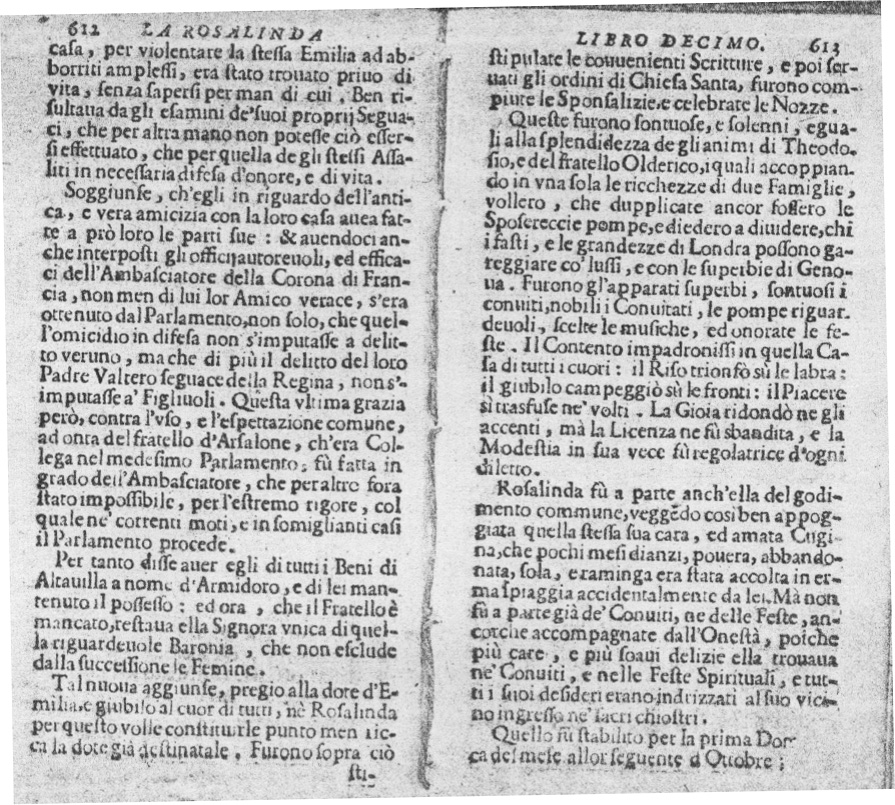 612 LA ROSALINDA
casa, per violentare la stessa Emilia ad ab-
borriti amplessi, era stato trouato priuo di
vita, senza sapersi per man di cui. Ben ri-
sultaua dagli esamini de'suoi proprij Segua-
ci, che per altra mano non potesse ciò esser-
si effettuato, che per quella degli stessi Assa-
liti in necessaria difesa d'onore, e di vita.
Soggiunse, ch'egli in riguardo dell'anti-
ca, e vera amicizia con la loro casa auea fat-
te a prò loro le parti sue: & auendoci an-
che interposti gli officij autoreuoli, ed effica-
ci dell'Ambasciatore della Corona di Fran-
cia, non men di lui lor Amico verace, s'era
ottenuto dal Parlamento, non solo, che quel-
l'omicidio in difesa non s'imputasse a delit-
to veruno, ma che di più il delitto del loro
Padre Valtero seguace della Regina, non s'-
imputasse a' Figliuoli. Questa vltima grazia
però, contra l'vso, e l'espettazione comune,
ad onta del fratello d'Arsalone, ch'era Col-
lega nel medesimo Parlamento, fù fatta in
grado dell'Ambasciatore, che per altro fora
stato impossibile, per l'estremo rigore, col
quale ne' correnti moti, e in somiglianti casi
il Parlamento procede.
Per tanto disse auer egli di tutti i Beni di
Altauilla a nome d'Armidoro, e di lei man-
tenuto il possesso: ed ora, che il Fratello è
mancato, restaua ella Signora vnica di quel-
la riguardeuole Baronia, che non esclude
dalla successione le Femine.
Tal nuoua aggiunse, pregio alla dote d'E-
milia, e giubilo al cuor di tutti, nè Rosalinda
per questo volle constituirle punto men ric-
ca la dote già destinatale. Furono sopra ciò
sti-
LIBRO DECIMO. 613
stipulate le conuenienti Scritture, e poi ser-
uati gli ordini di Chiesa Santa, furono com-
piute le Sponsalizie, e celebrate le Nozze.
Queste furono sontuose, e solenni, egua-
li alla splendidezza degli animi di Theodo-
sio, e del fratello Olderico, i quali accoppian-
do in vna sola le ricchezze di due Famiglie,
vollero, che dupplicate ancor fossero le
Sposereccie pompe, e diedero a diuidere, chi
i fasti, e le grandezze di Londra possono ga-
reggiare co' lussi, e con le superbie di Geno-
ua. Furono gl'apparati superbi, sontuosi i
conuiti, nobili i Conuitati, le pompe riguar-
deuoli, scelte le musiche, ed onorate le fe-
ste. Il Contento impadronissi in quella Ca-
sa di tutti i cuori: il Riso trionfò sù le labra:
il giubilo campeggiò sù le fronti: il Piacere
si trasfuse ne' volti. La Gioia ridondò ne gli
accenti, mà la Licenza ne fù sbandita, e la
Modestia in sua vece fù regolatrice d'ogni
diletto.
Rosalinda fù a parte anch'ella del godi-
mento commune, veggẽdo cosi ben appog-
giata quella stessa sua cara, ed amata Cugi-
na, che pochi mesi dianzi, pouera, abbando-
nata, sola, e raminga era stata accolta in er-
ma spiaggia accidentalmente da lei. Mà non
fù a parte già de' Conuiti, ne delle Feste, an-
corche accompagnate dall'Onestà, poiche
più care, e più soaui delizie ella trouaua
ne' Conuiti, e nelle Feste Spirituali, e tut-
ti i suoi desideri erano indrizzati al suo vici-
no ingresso ne' sacri chiostri.
Quello fù stabilito per la prima Dom-
ca del mese allor seguente d'Ottobre;